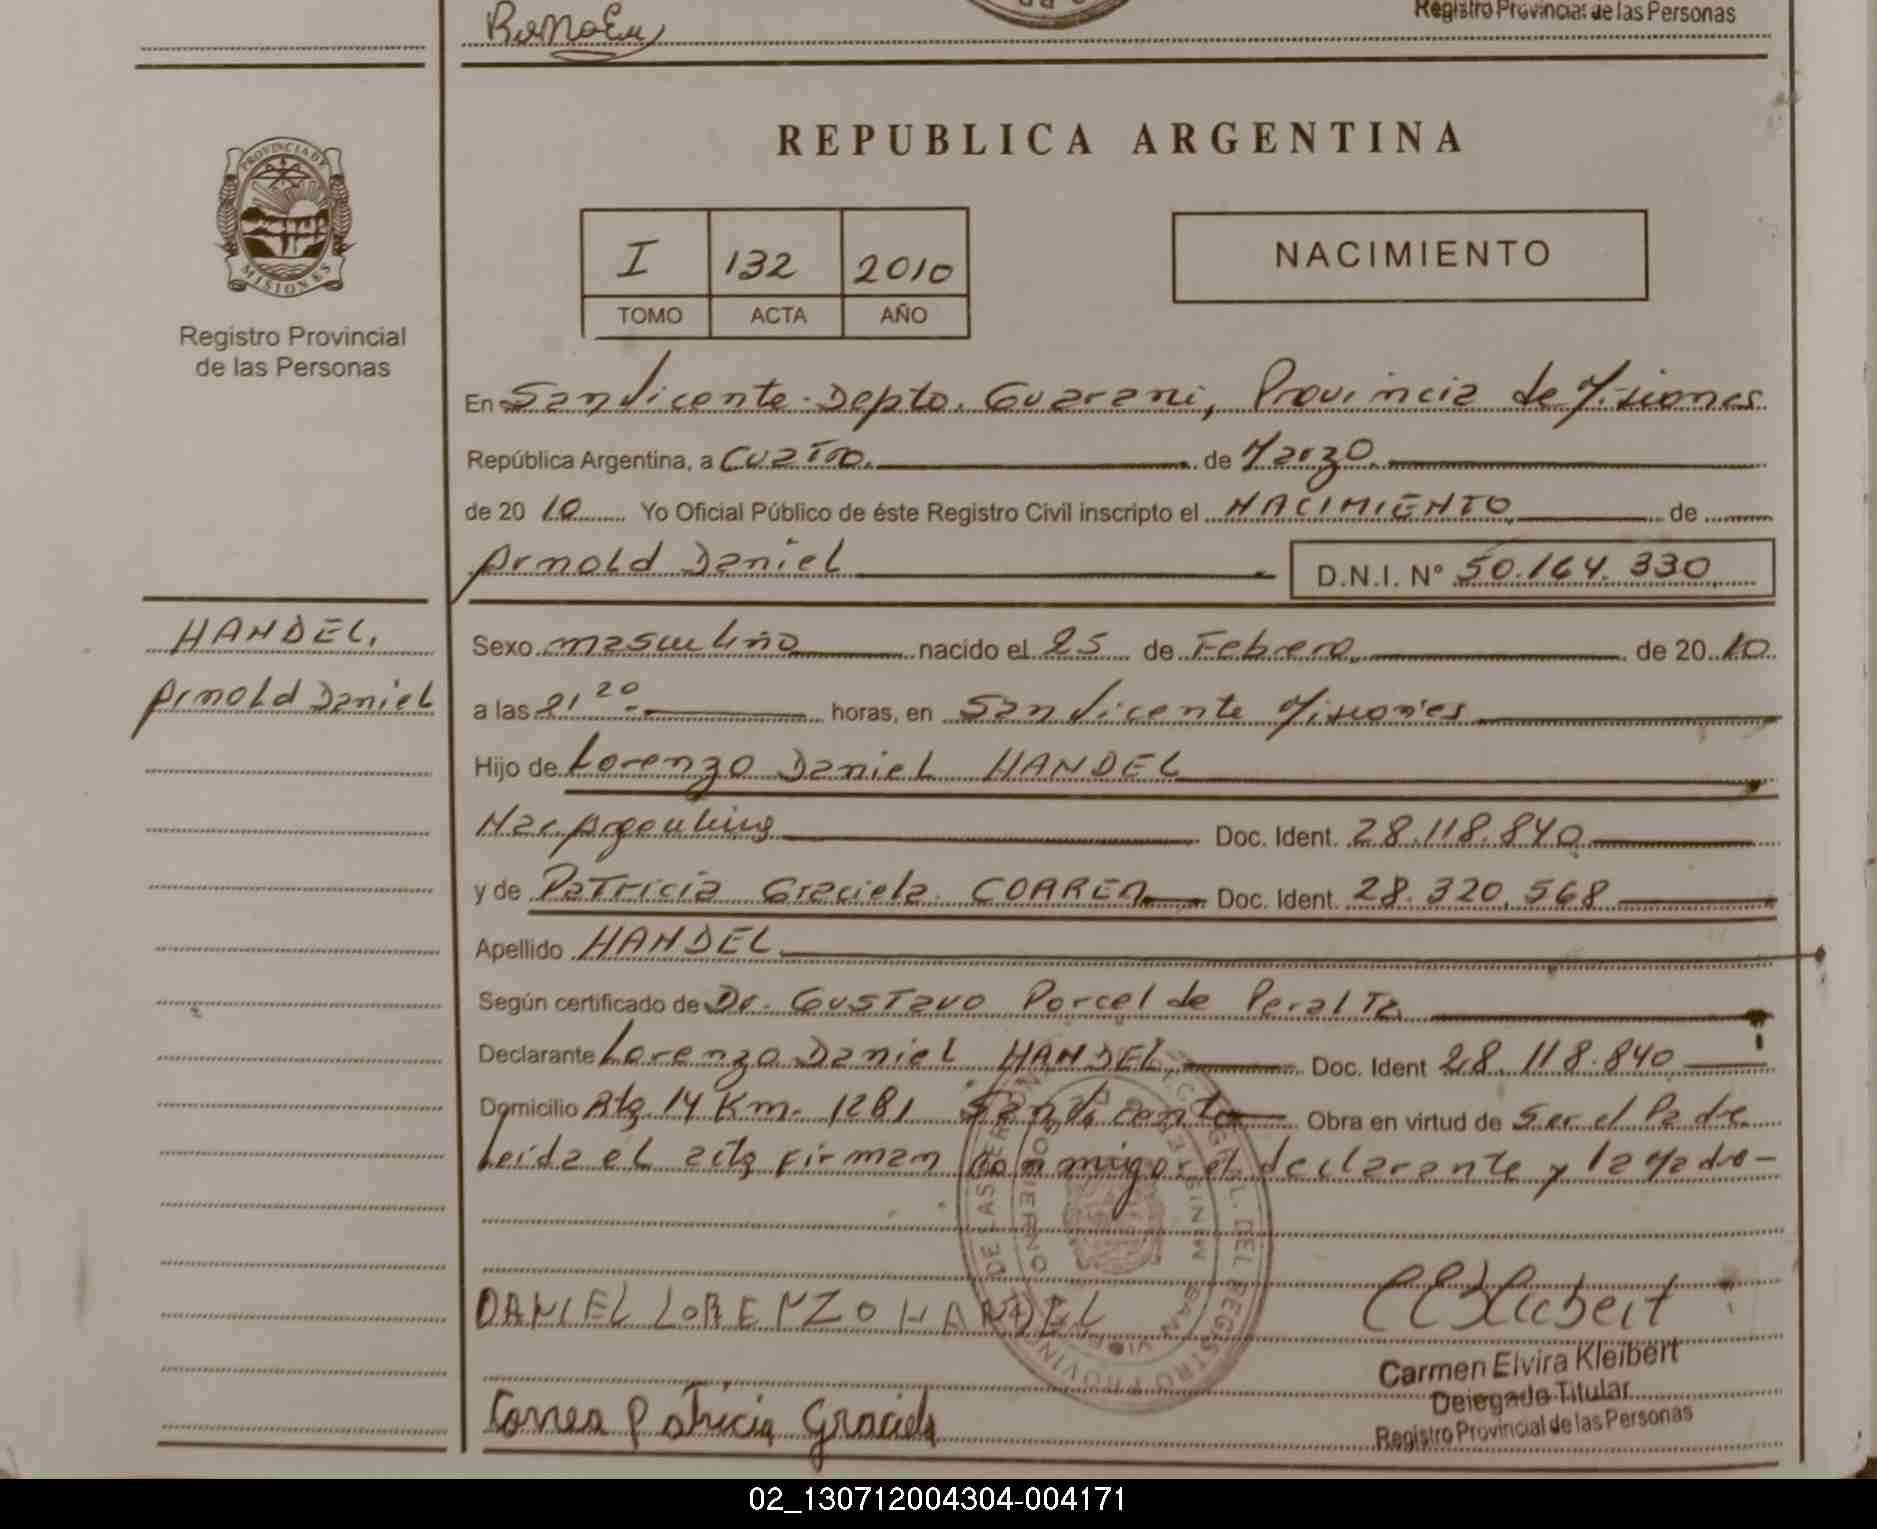 Registro Provincial de las Personas
REPUBLICA ARGENTINA
PROVINCIA DE
MISIONES
Registro Provincial
de las Personas
I 132 2010
TOMO ACTA AÑO
NACIMIENTO
En San Vicente - Depto. Guarani, Provincia de Misiones
República Argentina, a Cuatro. de Marzo.
de 20 10 Yo Oficial Público de éste Registro Civil inscripto el NACIMIENTO de
Arnold Daniel D.N.I. N° 50.164.330
HANDEL.
Arnold Daniel
Sexo masculino nacido el 25 de Febrero. de 20 10
a las 21 20 horas, en San Vicente Misiones
Hijo de Lorenzo Daniel HANDEL
Nac Argentino Doc. Ident. 28.118.840
y de Patricia Graciela CORREA Doc. Ident. 28.320.568
Apellido HANDEL
Según certificado de Dr. Gustavo Porcel de Peralta
Declarante Lorenzo Daniel HANDEL Doc. Ident 28.118.840
Domicilio Rta 14 Km. 1281 San Vicente Obra en virtud de Ser el Padre
Leida el acta firman conmigo el declarante y la Madre-
DANIEL LORENZO HANDEL
Carmen Elvira Kleibert
Delegado Titular
Registro Provincial de las Personas
Correa Patricia Graciela
02_130712004304-004171